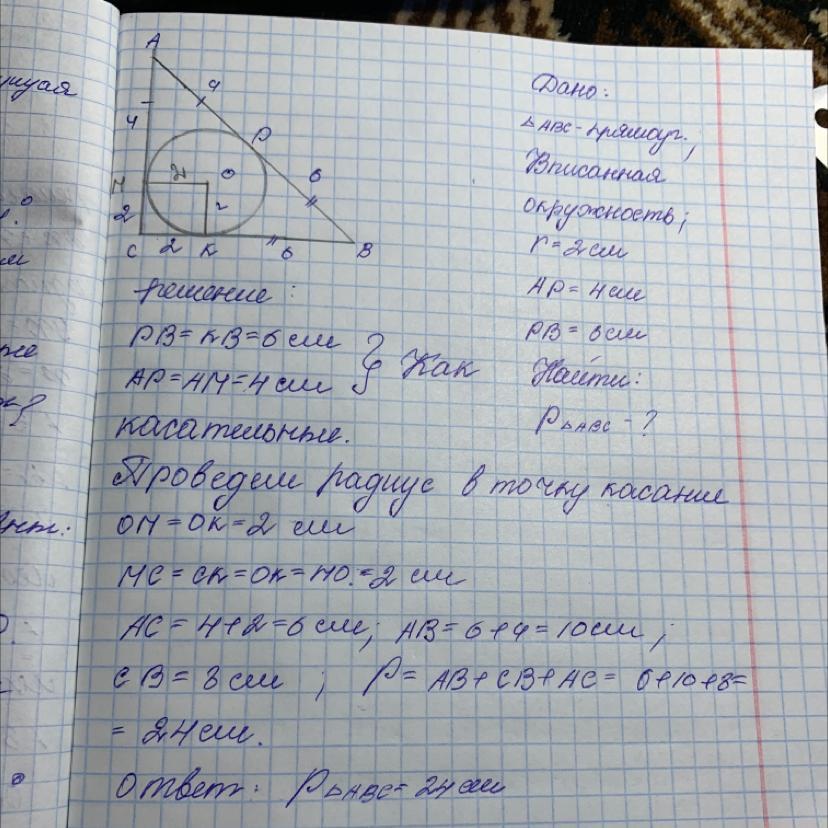 A
4
4
P
M
2
O
6
2
2
C
2
K
6
B
Дано:
△ABC - прямоуг.;
Вписанная
окружность;
r = 2 см
AP = 4 см
PB = 6 см
Найти:
P△ABC - ?
решение:
PB = KB = 6 см
AP = AM = 4 см } Как
касательные.
Проведем радиус в точку касание
OM = OK = 2 см
MC = CK = OK = MO = 2 см
AC = 4+2 = 6 см; AB = 6+4 = 10 см;
CB = 8 см ; P = AB+CB+AC = 6+10+8=
= 24 см.
Ответ: P△ABC = 24 см